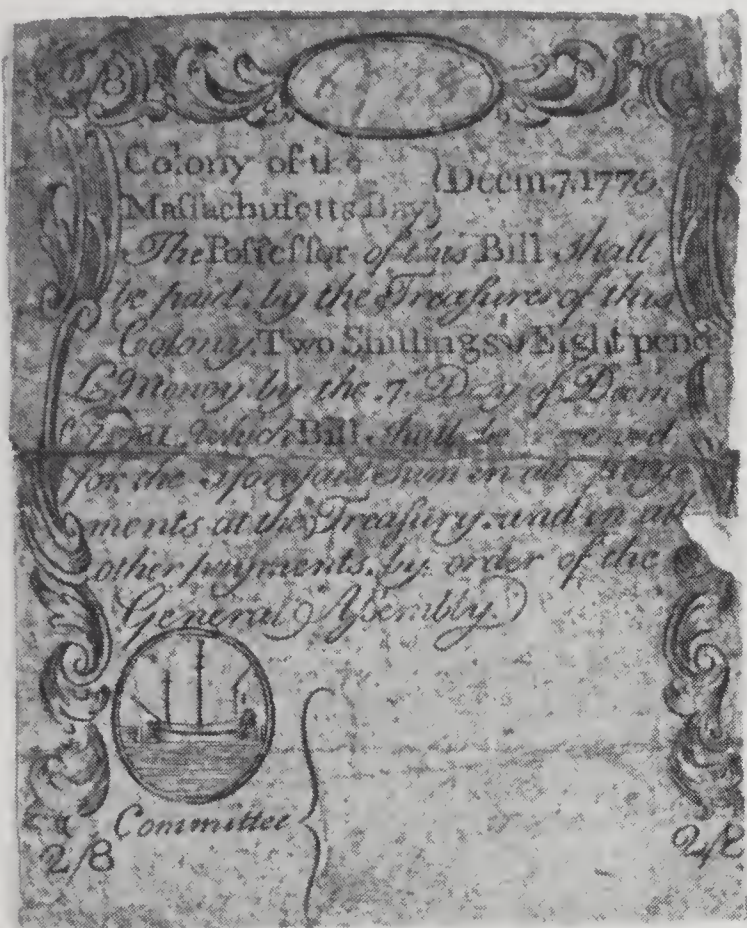 8
Colony of the
Maſſachuſetts Bay } Decm. 7, 1776.
The Poſſeſſor of this Bill ſhall
be paid, by the Treaſurer of this
Colony, Two Shillings & Eight pence
L. Money by the 7. Day of Decm.
which Bill ſhall be
for the ſum in all
ments at the Treaſury, and in all
other payments, by order of the
General Aſsembly.
Committee
2/8